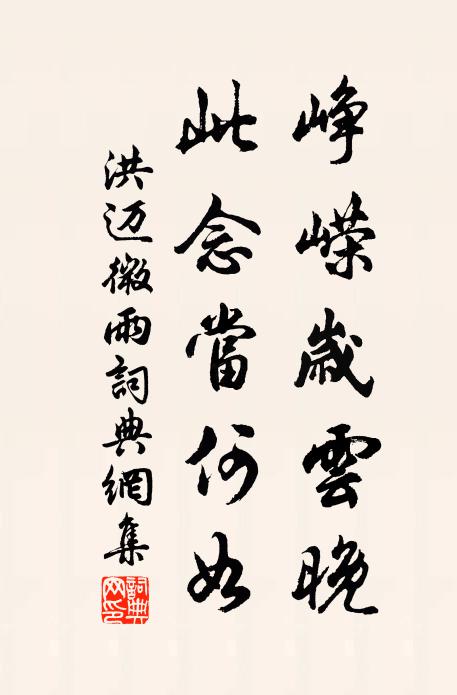 峥嵘歲雲晚
此念當何如
洪迈微雨詞典網集
詞典网印